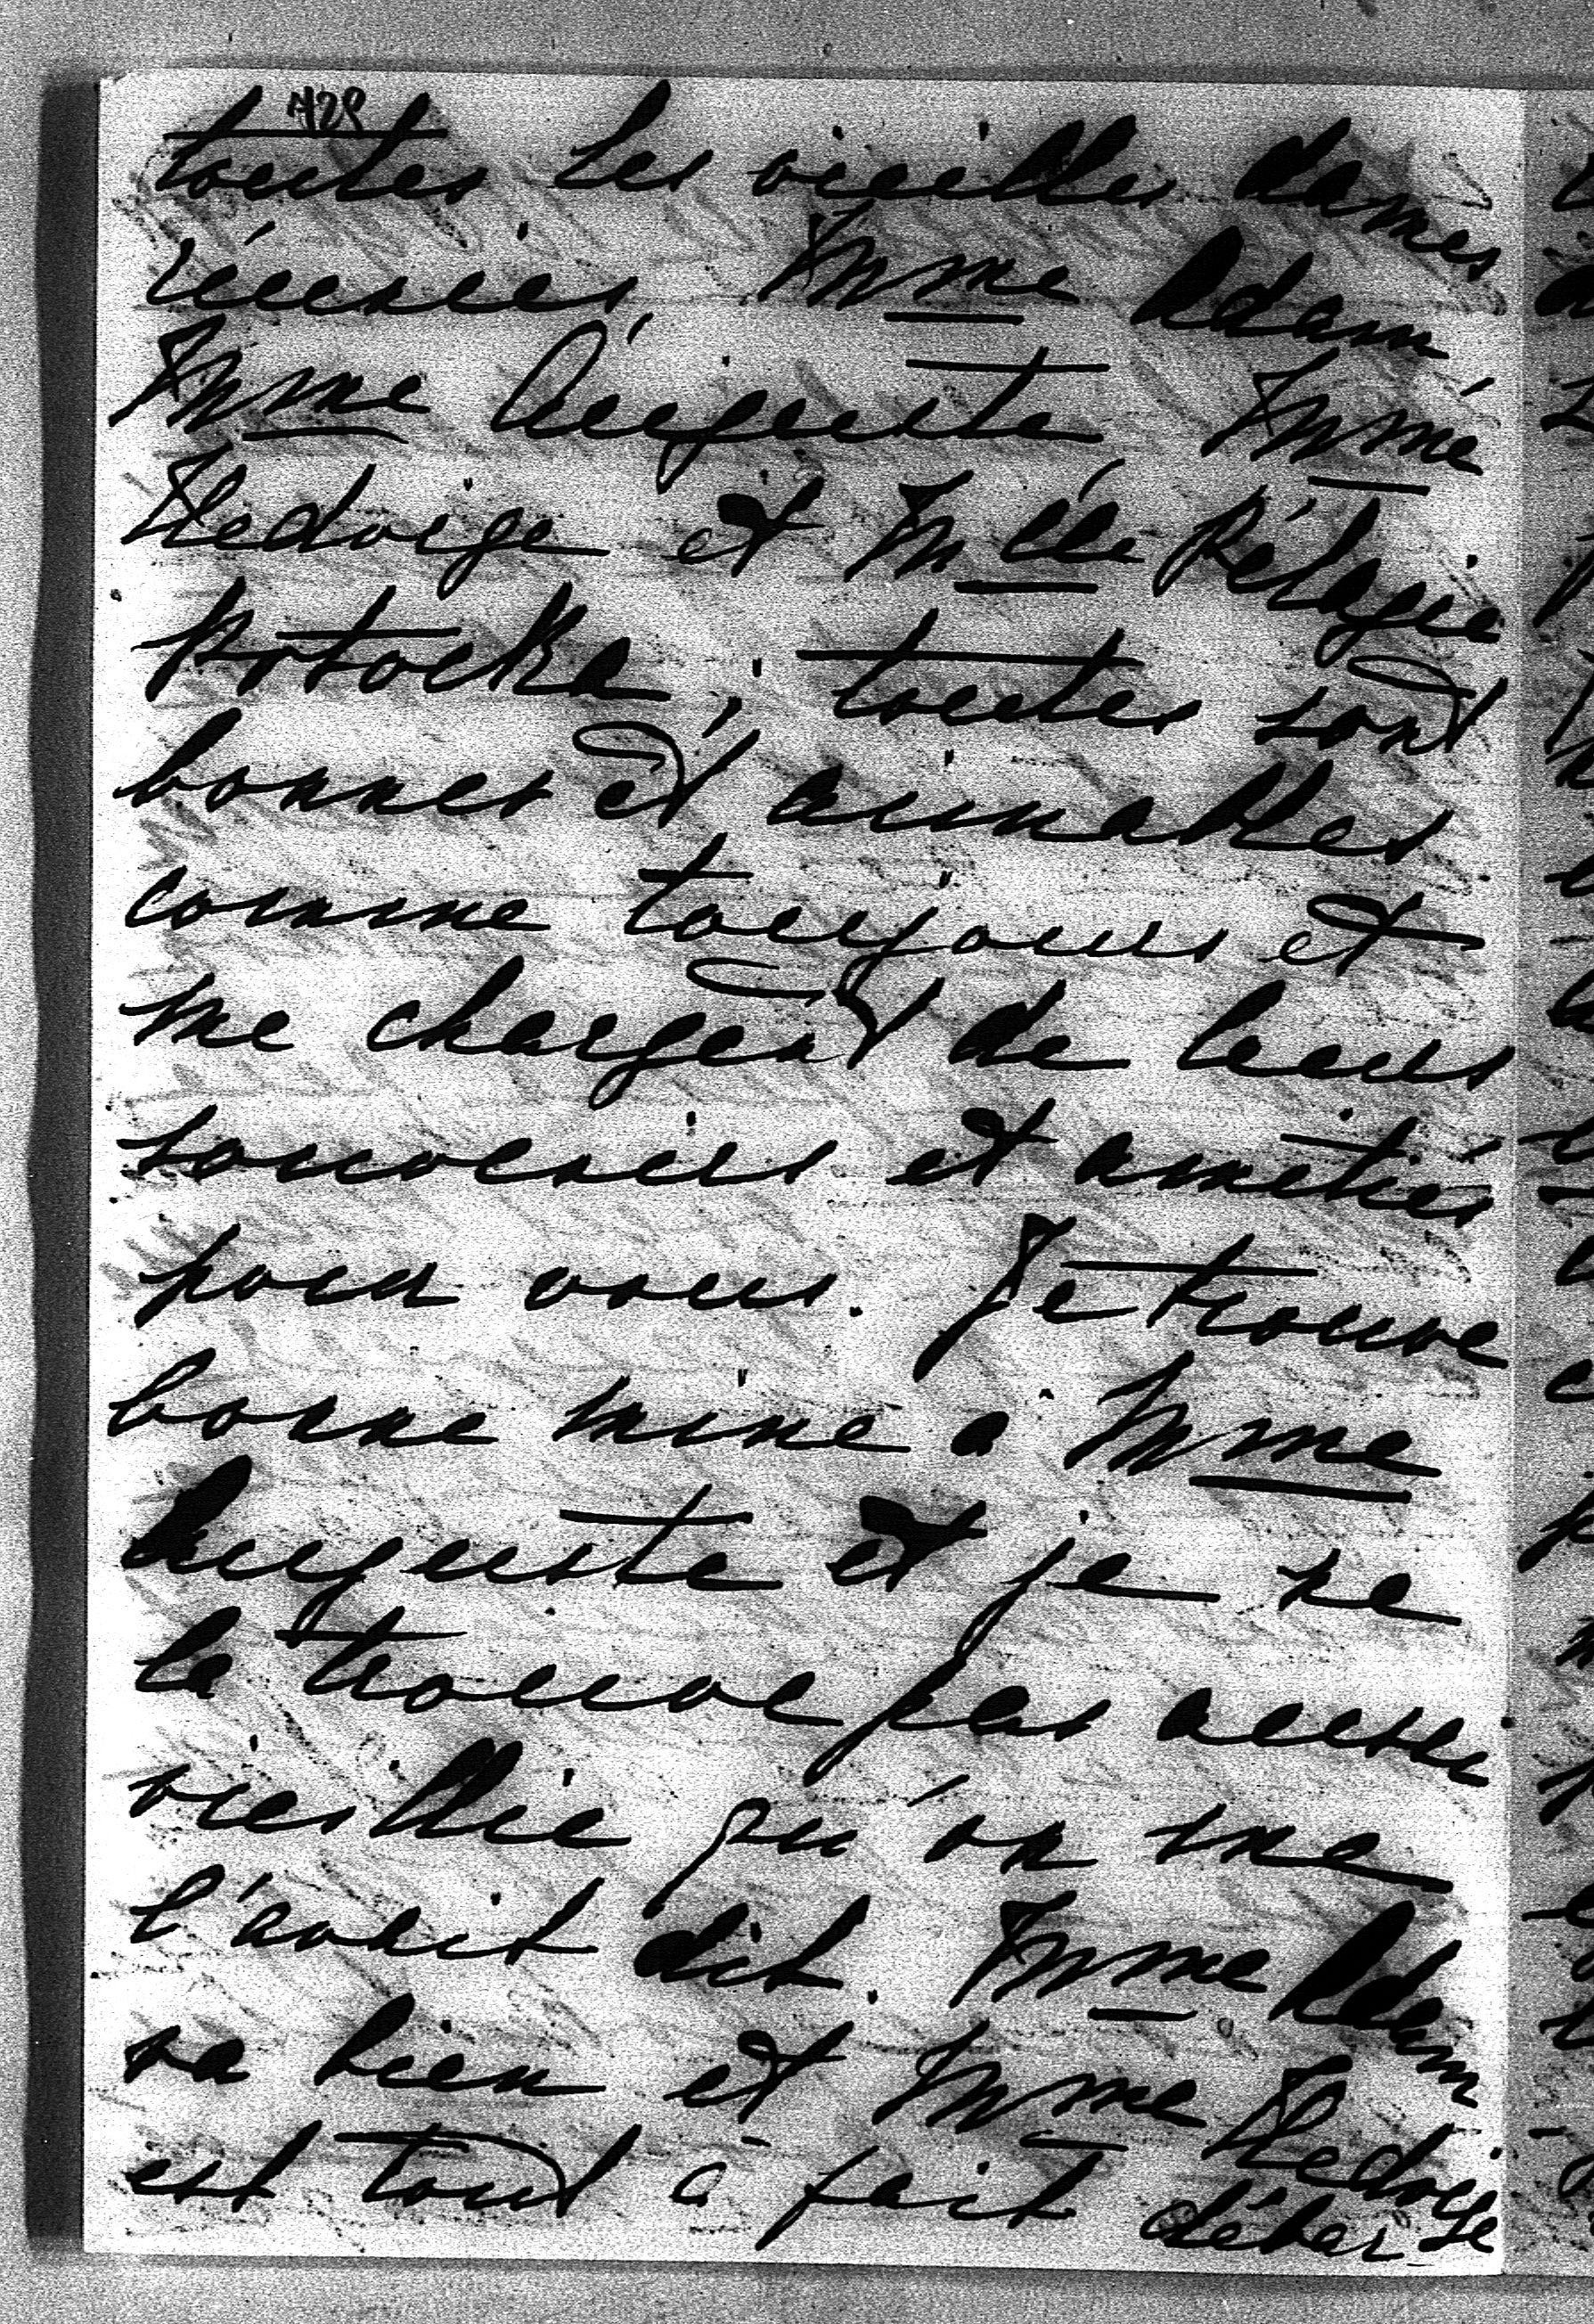 428
toutes les vieilles dames
réunies, Mme Adam
Mme Auguste, Mme
Hedvige et Mlle Pélagie
Potocka; toutes sont
bonnes et aimables
comme toujours et
me chargent de leurs
souvenirs et amitiés
pour vous. Je trouve
bonne mine à Mme
Auguste et je ne
la trouve pas aussi
vieillie qu'on me
l'avait dit. Mme Adam
va bien et Mme Hedvige
est tout à fait débar-